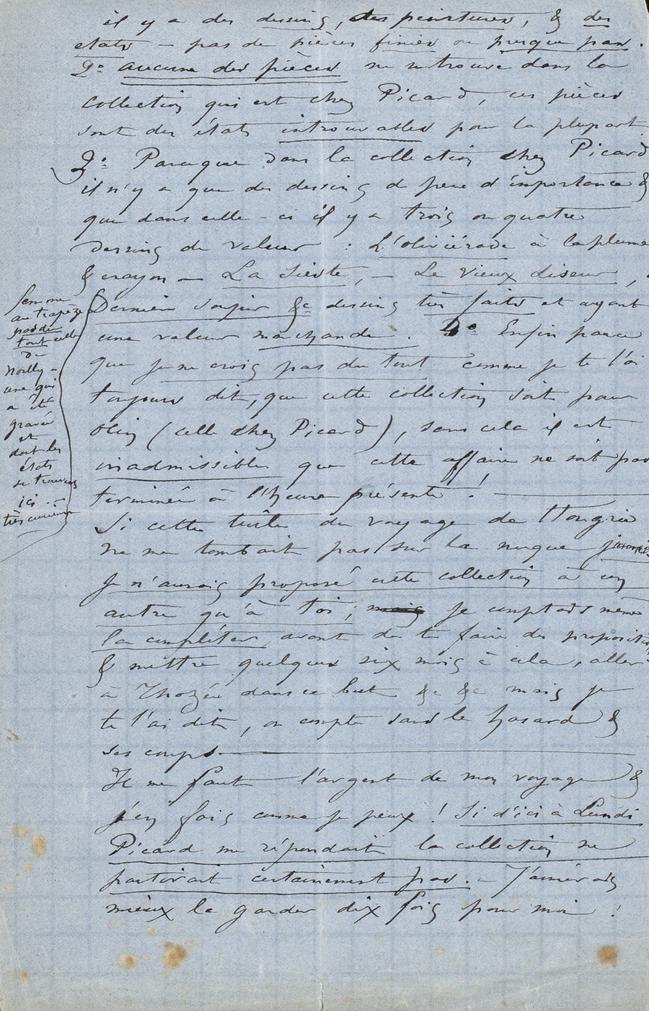 il y a des dessins, des peintures, & des
etats – pas de pièces finies ou presque pas.
2° aucune des pièces ne se trouve dans la
collection qui est chez Picard, ces pièces
sont des états introuvables pour la plupart.
3° Parceque dans la collection chez Picard
il n'y a que des dessins de peu d'importance &
que dans celle-ci il y a trois ou quatre
dessins de valeur : L'oliviérade à la plume
& crayon – La Sieste, – Le vieux diseur,
Dernier Soupir &c dessins très faits et ayant
une valeur marchande. 4° Enfin parce
que je ne crois pas du tout comme je te l'ai
toujours dit, que cette collection soit pour
(celle chez Picard), sans cela il est
inadmissible que cette affaire ne soit pas
terminée à l'heure présente ! –
Si cette tuile du voyage de Hongrie
ne me tombait pas sur la nuque jamais
je n'aurais proposé cette collection à un
autre qu'à toi ; mais je comptais même
la compléter avant de te faire des propositions
& mettre quelques six mois à cela, aller
à Thozée dans ce but &c &c mais je
te l'ai dit, on compte sans le hasard &
ses coups. –
Il me faut l'argent de mon voyage &
j'en fais comme je peux ! Si d'ici à Lundi
Picard me répondait la collection ne
partirait certainement pas. – J'aimerais
mieux la garder dix fois pour moi !
Femme
au trapèze
pas du
tout celle
de
Noilly –
une qui
a été
gravée
et
dont les
états
se trouvent
ici –
très curieux